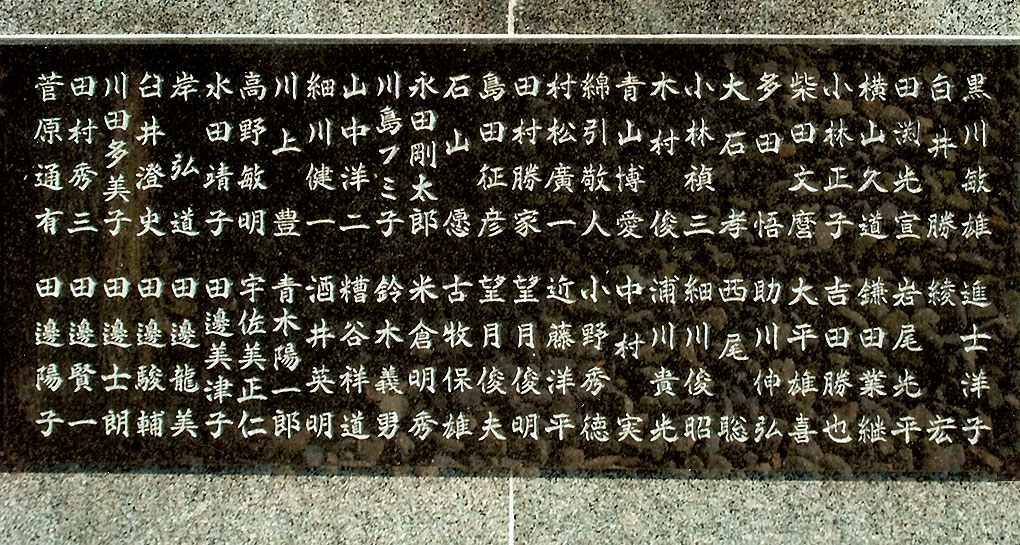 黒川敏雄
白井勝
田渕光宣
横山久道
小林正子
柴田文麿
多田悟
大石孝
小林禎三
木村俊
青山博愛
綿引敬人
村松廣一
田村勝家
島田征彦
石山愿
永田剛太郎
川島フミ子
山中洋二
細川健一
川上豊
高野敏明
水田靖子
岸弘道
臼井澄史
川田多美子
田村秀三
菅原通有
進士洋子
綾宏
岩尾光平
鎌田業継
吉田勝也
大平雄喜
助川伸弘
西尾聡
細川俊昭
浦川貴光
中村実
小野秀徳
近藤洋平
望月俊明
望月俊夫
古牧保雄
米倉明秀
鈴木義男
糟谷祥道
酒井英明
青木陽一郎
宇佐美正仁
田邊美津子
田邊龍美
田邊駿輔
田邊士朗
田邊賢一
田邊陽子